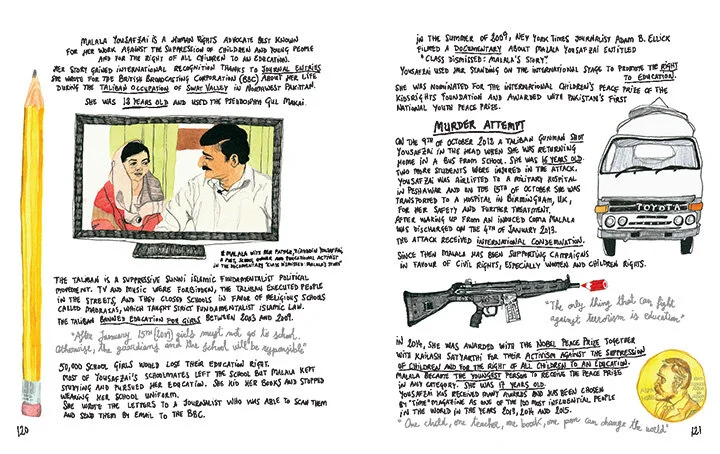 MALALA YOUSAFZAI IS A HUMAN RIGHTS ADVOCATE BEST KNOWN
FOR HER WORK AGAINST THE SUPPRESSION OF CHILDREN AND YOUNG PEOPLE
AND FOR THE RIGHT OF ALL CHILDREN TO AN EDUCATION.
HER STORY GAINED INTERNATIONAL RECOGNITION THANKS TO JOURNAL ENTRIES
SHE WROTE FOR THE BRITISH BROADCASTING CORPORATION (BBC) ABOUT HER LIFE
DURING THE TALIBAN OCCUPATION OF SWAT VALLEY IN NORTHWEST PAKISTAN.
SHE WAS 12 YEARS OLD AND USED THE PSEUDONYM GUL MAKAI.
MALALA WITH HER FATHER, ZIAUDDIN YOUSAFZAI,
A POET, SCHOOL OWNER AND EDUCATIONAL ACTIVIST
IN THE DOCUMENTARY "CLASS DISMISSED: MALALA'S STORY"
THE TALIBAN IS A SUPPRESSIVE SUNNI ISLAMIC FUNDAMENTALIST POLITICAL
MOVEMENT. TV AND MUSIC WERE FORBIDDEN, THE TALIBAN EXECUTED PEOPLE
IN THE STREETS, AND THEY CLOSED SCHOOLS IN FAVOR OF RELIGIOUS SCHOOLS
CALLED MADRASAS, WHICH TAUGHT STRICT FUNDAMENTALIST ISLAMIC LAW.
THE TALIBAN BANNED EDUCATION FOR GIRLS BETWEEN 2003 AND 2009.
"After January 15TH (2009) girls must not go to school.
Otherwise, the guardians and the school will be responsible"
50,000 SCHOOL GIRLS WOULD LOSE THEIR EDUCATION RIGHT.
MOST OF YOUSAFZAI'S SCHOOLMATES LEFT THE SCHOOL BUT MALALA KEPT
STUDYING AND PURSUED HER EDUCATION. SHE HID HER BOOKS AND STOPPED
WEARING HER SCHOOL UNIFORM.
SHE WROTE THE LETTERS TO A JOURNALIST WHO WAS ABLE TO SCAN THEM
AND SEND THEM BY EMAIL TO THE BBC.
120
IN THE SUMMER OF 2009, NEY YORK TIMES JOURNALIST ADAM B. ELLICK
FILMED A DOCUMENTARY ABOUT MALALA YOUSAFZAI ENTITLED
"CLASS DISMISSED: MALALA'S STORY".
YOUSAFZAI USED HER STANDING ON THE INTERNATIONAL STAGE TO PROMOTE THE RIGHT
TO EDUCATION.
SHE WAS NOMINATED FOR THE INTERNATIONAL CHILDREN'S PEACE PRIZE OF THE
KIDSRIGHTS FOUNDATION AND AWARDED WITH PAKISTAN'S FIRST
NATIONAL YOUTH PEACE PRIZE.
MURDER ATTEMPT
ON THE 9TH OF OCTOBER 2012 A TALIBAN GUNMAN SHOT
YOUSAFZAI IN THE HEAD WHEN SHE WAS RETURNING
HOME IN A BUS FROM SCHOOL. SHE WAS 15 YEARS OLD.
TWO MORE STUDENTS WERE INJURED IN THE ATTACK.
YOUSAFZAI WAS AIRLIFTED TO A MILITARY HOSPITAL
IN PESHAWAR AND ON THE 15TH OF OCTOBER SHE WAS
TRANSPORTED TO A HOSPITAL IN BIRMINGHAM, UK,
FOR HER SAFETY AND FURTHER TREATMENT.
AFTER WAKING UP FROM AN INDUCED COMA MALALA
WAS DISCHARGED ON THE 4TH OF JANUARY 2013.
THE ATTACK RECEIVED INTERNATIONAL CONDEMNATION.
SINCE THEN MALALA HAS BEEN SUPPORTING CAMPAIGNS
IN FAVOUR OF CIVIL RIGHTS, ESPECIALLY WOMEN AND CHILDREN RIGHTS.
TOYOTA
"The only thing that can fight
against terrorism is education"
IN 2014, SHE WAS AWARDED WITH THE NOBEL PEACE PRIZE TOGETHER
WITH KAILASH SATYARTHI FOR THEIR ACTIVISM AGAINST THE SUPPRESSION
OF CHILDREN AND FOR THE RIGHT OF ALL CHILDREN TO AN EDUCATION.
MALALA BECAME THE YOUNGEST PERSON TO RECEIVE THE PEACE PRIZE
IN ANY CATEGORY. SHE WAS 17 YEARS OLD.
YOUSAFZAI HAS RECEIVED MANY AWARDS AND HAS BEEN CHOSEN
BY "TIME" MAGAZINE AS ONE OF THE 100 MOST INFLUENTIAL PEOPLE
IN THE WORLD IN THE YEARS 2013, 2014 AND 2015.
"One child, one teacher, one book, one pen can change the world"
121